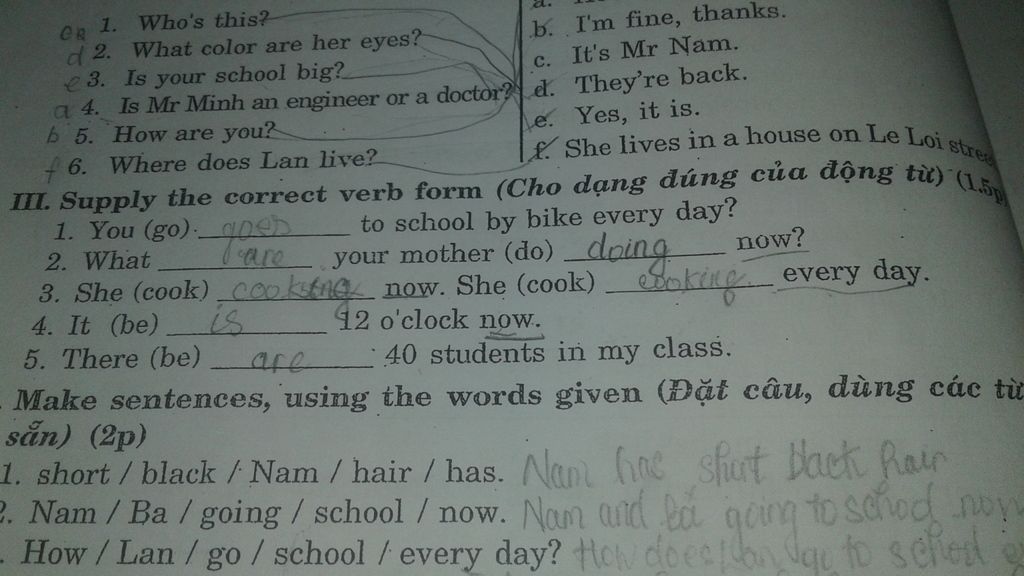 1. Who's this? a.
d 2. What color are her eyes? b. I'm fine, thanks.
e 3. Is your school big? c. It's Mr Nam.
a 4. Is Mr Minh an engineer or a doctor? d. They're back.
b 5. How are you? e. Yes, it is.
f 6. Where does Lan live? f. She lives in a house on Le Loi stree
III. Supply the correct verb form (Cho dạng đúng của động từ) (1.5p
1. You (go) goes to school by bike every day?
2. What are your mother (do) doing now?
3. She (cook) cooking now. She (cook) cooking every day.
4. It (be) is 12 o'clock now.
5. There (be) are 40 students in my class.
Make sentences, using the words given (Đặt câu, dùng các từ
sẵn) (2p)
1. short / black / Nam / hair / has. Nam has short black hair
2. Nam / Ba / going / school / now. Nam and Ba going to school now
How / Lan / go / school / every day? How does Lan go to school